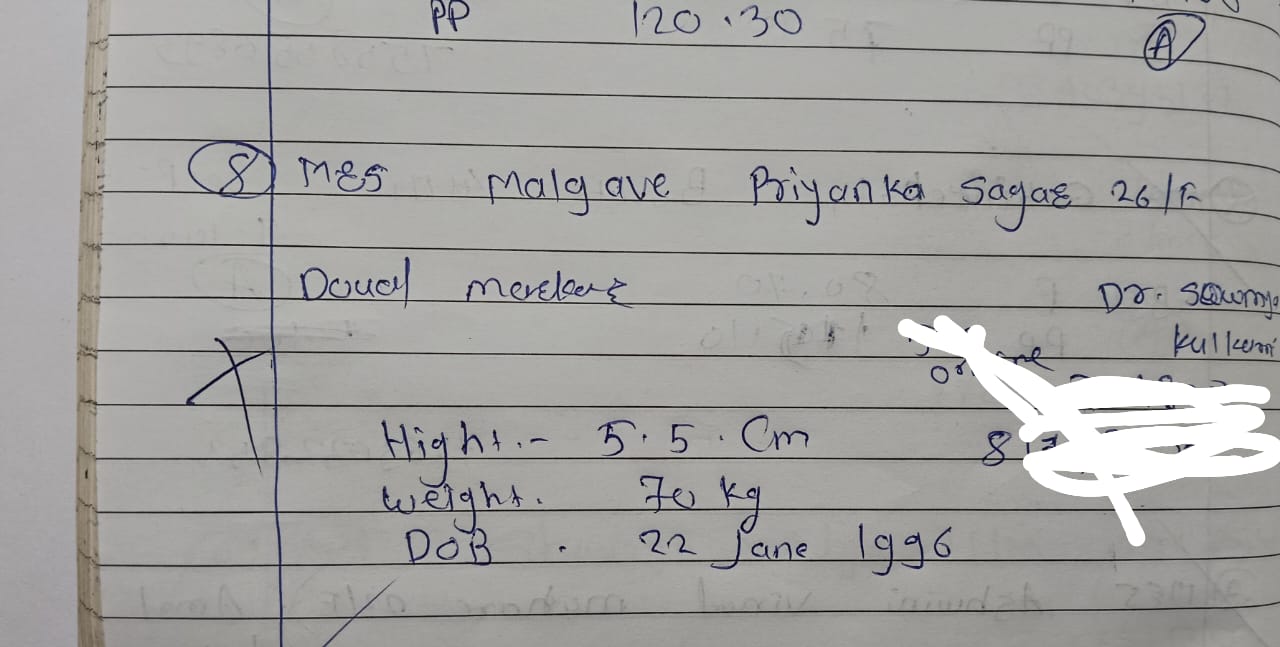 PP 120.30
A
8 MRS Malgave Priyanka Sagar 26/F
Doual mereker Dr. Sawmya
Kulkerni
Hight.- 5.5. Cm 8
weight. 70 kg
DOB . 22 Jane 1996